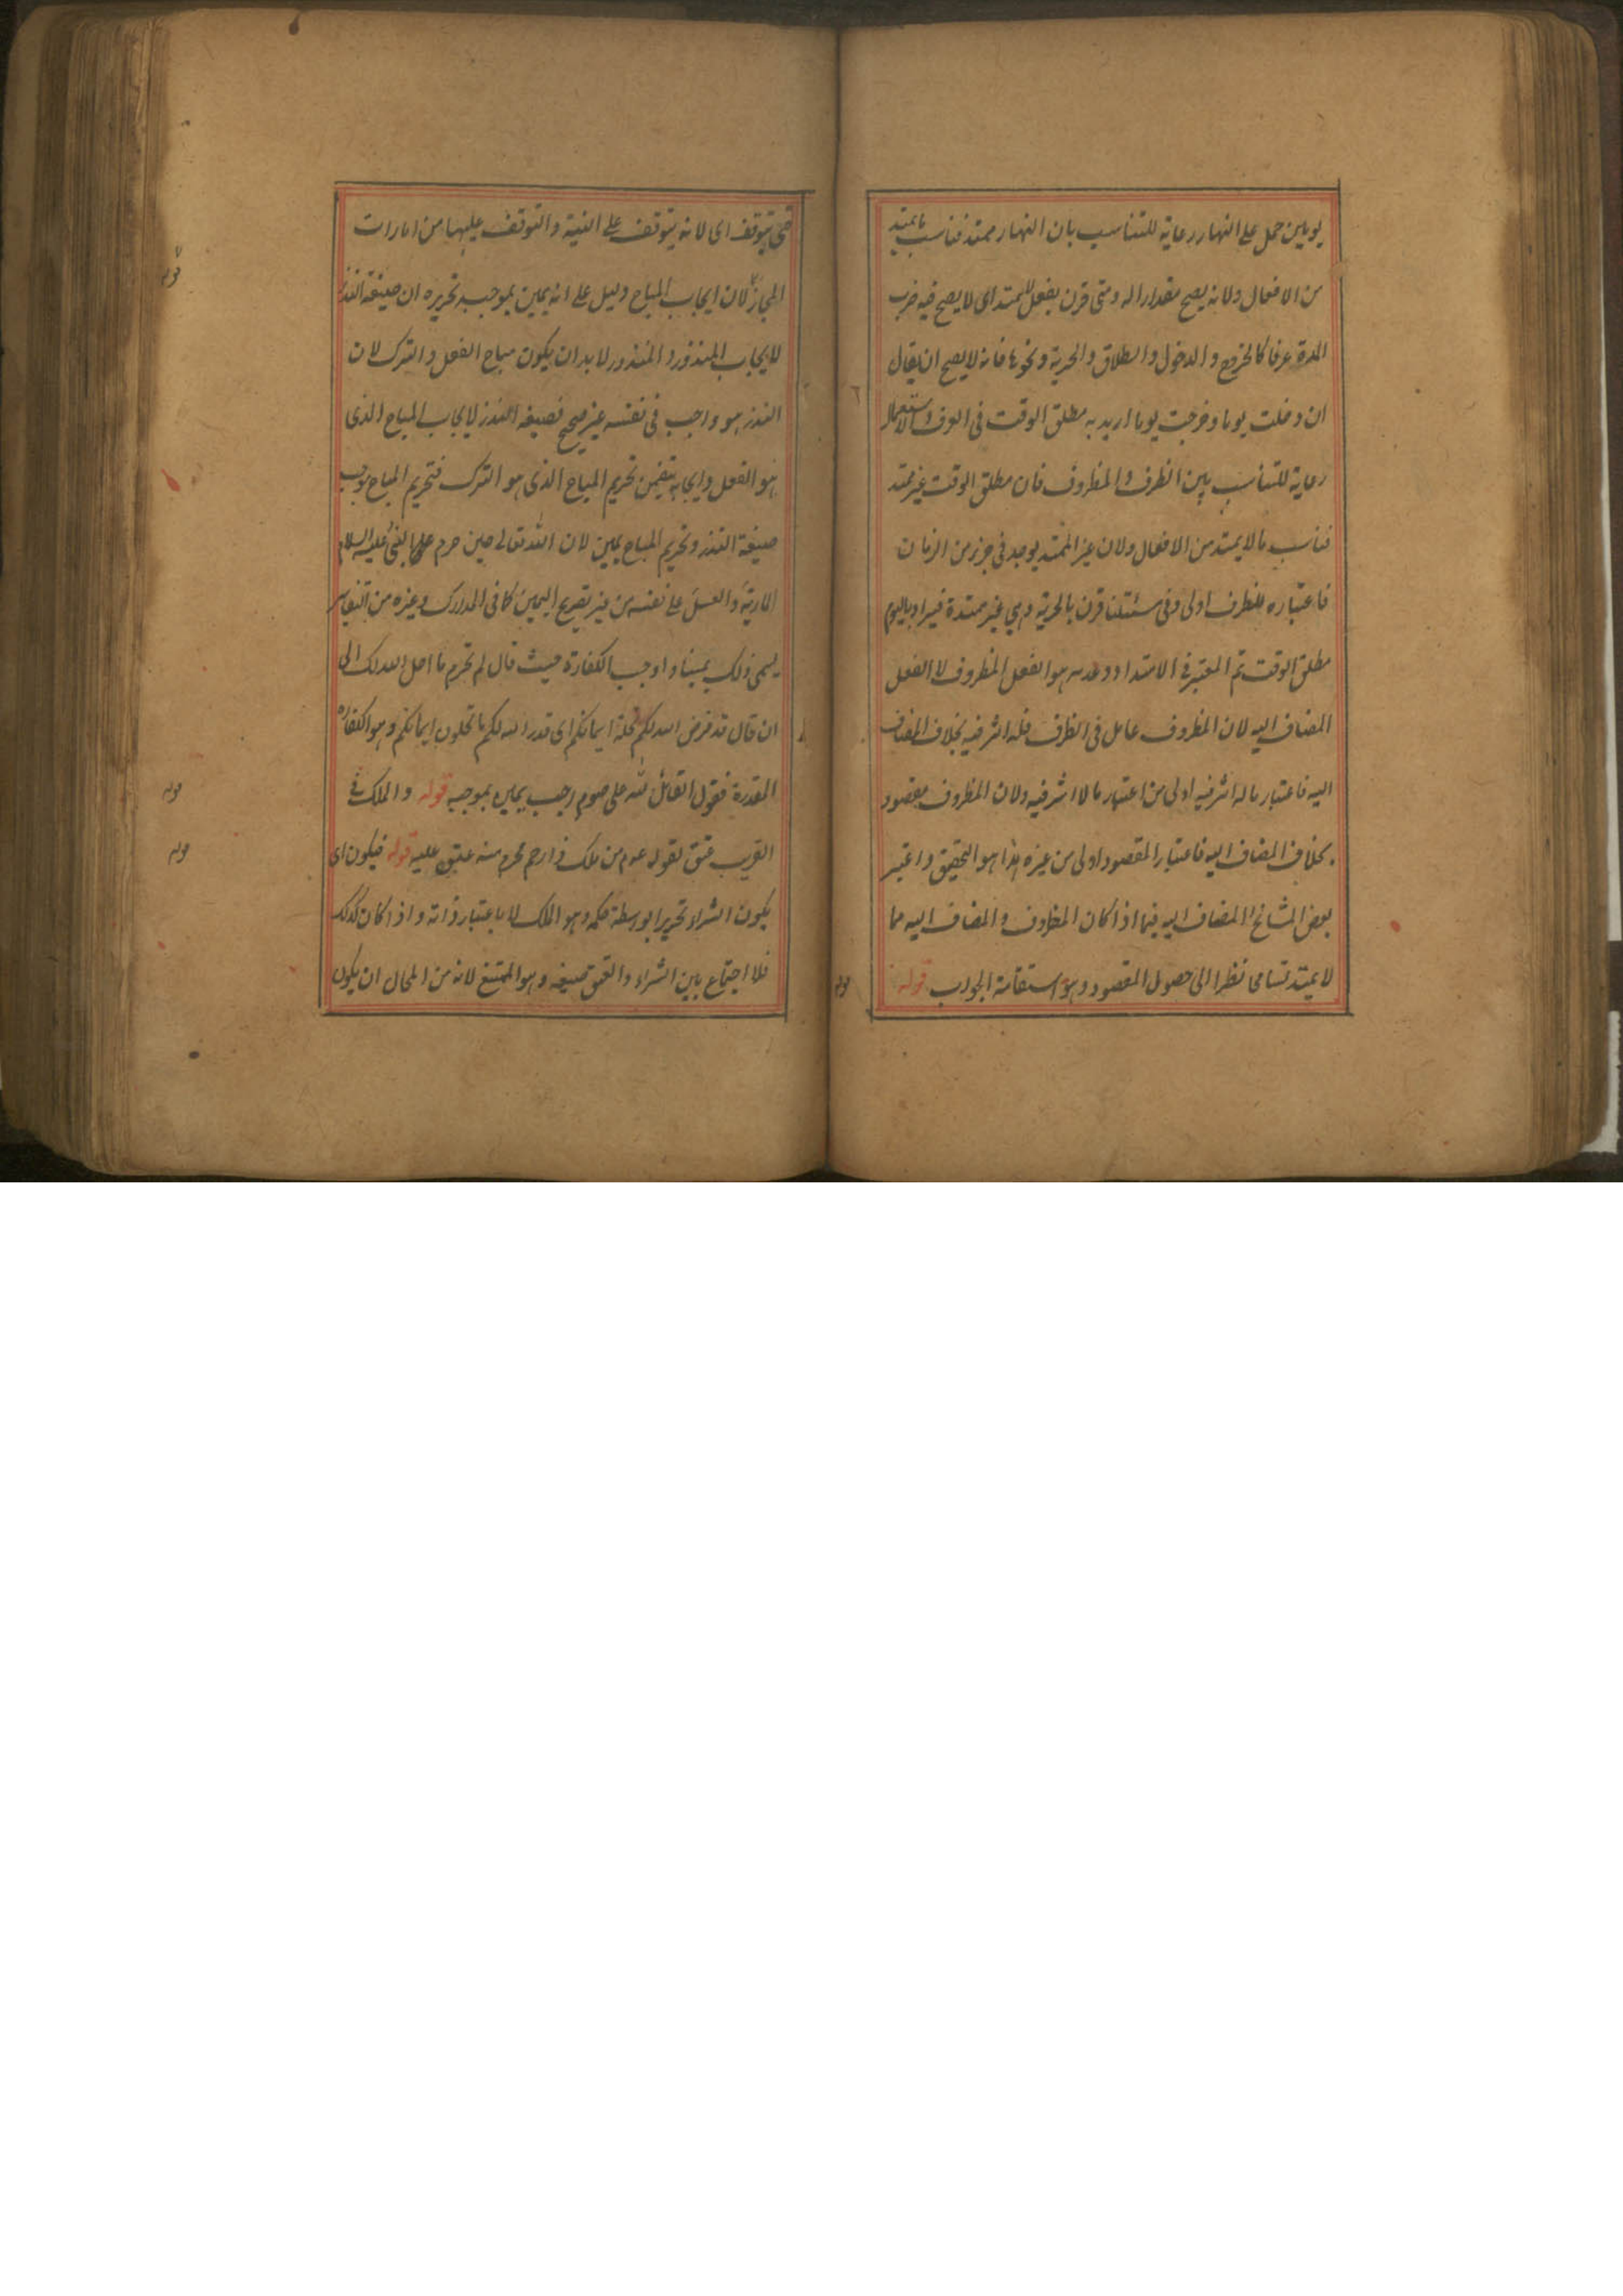 يومين حمل على النهار رعاية للتناسب بان النهار ممتد فناسب ما يمتد
من الافعال ولانه يصح مقدارا له ومتى قرن بفعل لا يمتد اى لا يصح فيه ضرب
المدة عرفا كالخروج والدخول والطلاق والحرية ونحوها فانه لا يصح ان يقال
ان دخلت يوما وخرجت يوما اريد به مطلق الوقت فى العرف والاستعمال
رعاية للتناسب بين الظرف والمظروف فان مطلق الوقت غير ممتد
فناسب ما لا يمتد من الافعال ولان غير الممتد يوجد فى جزء من الزمان
فاعتباره للظرف اولى وفى مسئلتنا قرن بالحرية وهى غير ممتدة فيراد باليوم
مطلق الوقت ثم المعتبر فى الامتداد وعدمه هو الفعل المظروف لا الفعل
المضاف اليه لان المظروف عامل فى الظرف فله اثر فيه بخلاف المضاف
اليه فاعتبار ما له اثر فيه اولى من اعتبار ما لا اثر فيه ولان المظروف مقصود
بخلاف المضاف اليه فاعتبار المقصود اولى من غيره هذا هو التحقيق واعتبر
بعض المشائخ المضاف اليه فيما اذا كان المظروف والمضاف اليه مما
لا يمتد تسامحا نظرا الى حصول المقصود وهو استقامة الجواب قوله
حتى يتوقف اى لانه يتوقف على النية والتوقف عليها من امارات
المجاز لان ايجاب المباح دليل على انه يمين بموجبه تحريره ان صيغة النذر
لايجاب المنذور والمنذور لا بد ان يكون مباح الفعل والترك لان
النذر هو واجب فى نفسه غير صحيح فصيغة النذر لايجاب المباح الذى
هو الفعل وايجابه يتضمن تحريم المباح الذى هو الترك فتحريم المباح موجب
صيغة النذر وتحريم المباح يمين لان الله تعالى حين حرم النبى عليه السلام
المارية والعسل على نفسه من غير تصريح اليمين كما فى المدارك وغيره من التفاسير
يسمى ذلك يمينا واوجب الكفارة حيث قال لم تحرم ما احل الله لك الى
ان قال قد فرض الله لكم تحلة ايمانكم اى قدر الله لكم ما تحلون ايمانكم وهو الكفارة
المقدرة فقول القائل لله على صوم رجب يمين بموجبه قوله والملك فى
القريب عتق لقوله عم من ملك ذا رحم محرم منه عتق عليه قوله فيكون اى
يكون الشراء تحريرا بواسطة حكمه وهو الملك لا باعتبار ذاته واذا كان كذلك
فلا اجتماع بين الشراء والعتق صيغة وهو الممتنع لانه من المحال ان يكون
قوله
قوله
قوله
قوله